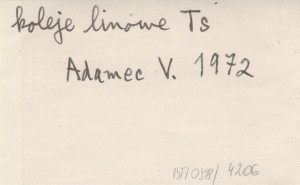 koleje linowe Tś
Adamec V. 1972
BTI058/4206